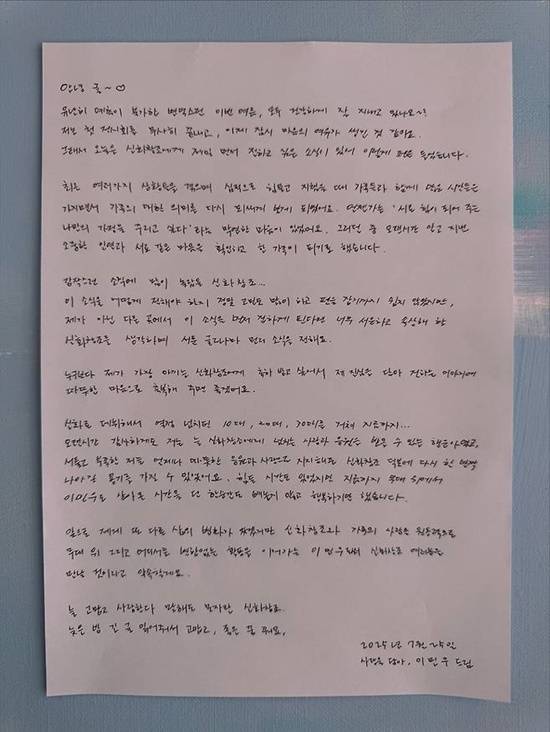 안녕 귤~♡
유난히 예측이 불가한 변덕스런 이번 여름, 모두 건강하게 잘 지내고 있나요~?
저는 첫 전시회를 무사히 끝내고, 이제 잠시 마음의 여유가 생긴 것 같아요.
그래서 오늘은 신화창조에게 제일 먼저 전하고 싶은 소식이 있어 이렇게 펜을 들었습니다.
최근 여러가지 상황들을 겪으며 심적으로 힘들고 지쳤을 때 가족들과 함께 많은 시간들을
가지면서 가족의 대한 의미를 다시 되새기게 되었어요. 언젠가는 '서로 힘이 되어 주는
나만의 가정을 꾸리고 싶다'라는 막연한 마음이 있었어요. 그러던 중 오랜시간 알고 지낸
소중한 인연과 서로 같은 마음을 확인하고 한 가족이 되기로 했습니다.
갑작스런 소식에 많이 놀랐을 신화창조...
이 소식을 어떻게 전해야 하지 정말 고민도 많이 하고 펜을 잡기까지 쉽지 않았지만,
제가 아닌 다른 곳에서 이 소식을 먼저 접하게 된다면 너무 서운하고 속상해 할
신화창조를 생각하며 서툰 글이나마 먼저 소식을 전해요.
누구보다 제가 가장 아끼는 신화창조에게 축하 받고 싶어서 제 진심을 담아 전하는 이야기에
따뜻한 마음으로 축복해 주면 좋겠어요.
신화로 데뷔해서 열정 넘치던 10대, 20대, 30대를 거쳐 지금까지...
오랜시간 감사하게도 저는 늘 신화창조에게 넘치는 사랑과 응원을 받을 수 있는 행운아였고,
서툴고 부족한 저를 언제나 따뜻한 응원과 사랑으로 지지해준 신화창조 덕분에 다시 한 번 더
나아갈 용기를 가질 수 있었어요. 힘든 시간도 있었지만 지금까지 무대 위에서
이민우로 살아온 시간은 단 한순간도 빼놓지 않고 행복하기만 했습니다.
앞으로 제게 또 다른 삶의 변화가 찾겠지만 신화창조와 가족의 사랑을 원동력으로
무대 위 그리고 어디서든 변함없는 활동을 이어가는 이민우로써 신화창조 여러분을
만날 것이라고 약속할게요.
늘 고맙고 사랑한다 말해도 모자란 신화창조.
늦은 밤 긴 글 읽어줘서 고맙고, 좋은 꿈 꿔요.
2025년 7월 25일
사랑을 담아, 이민우 드림